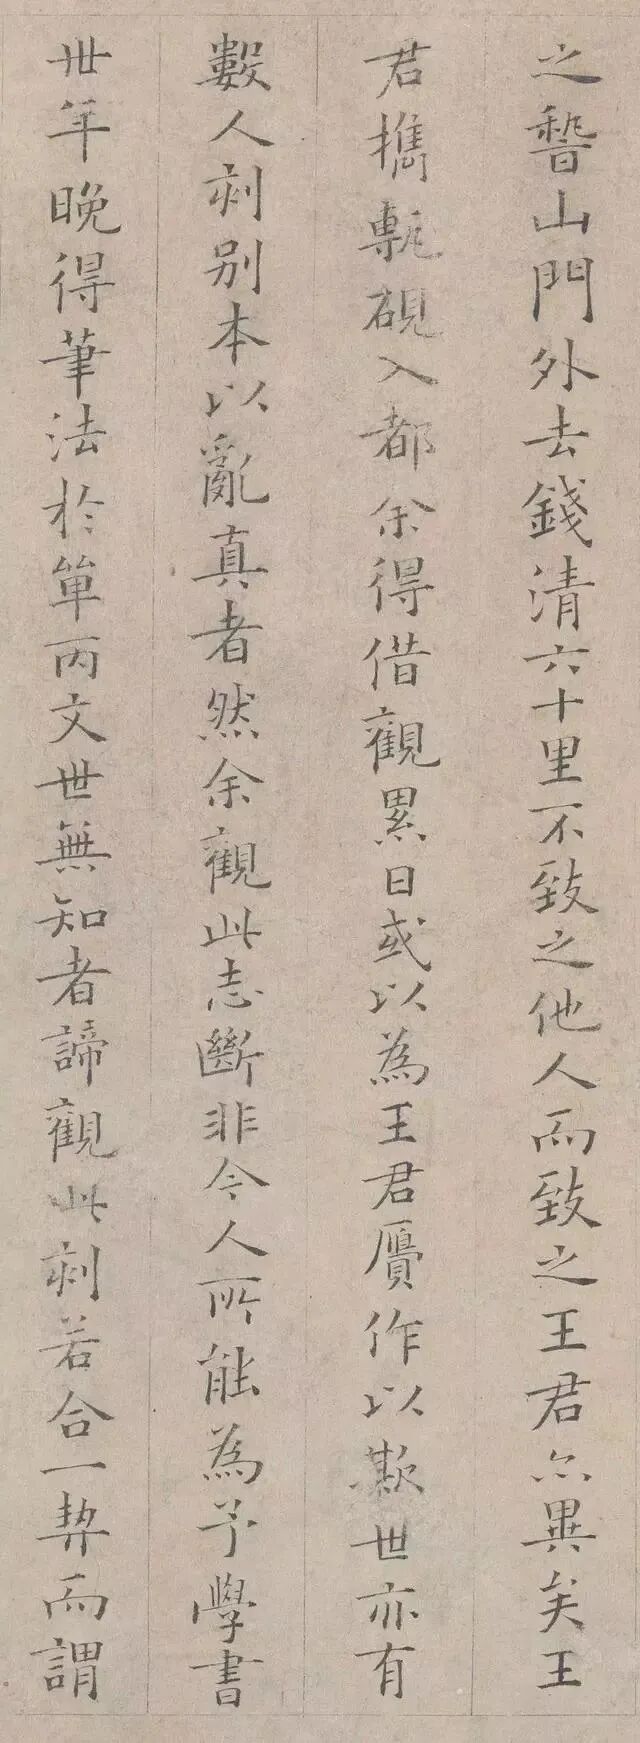 之稽山門外去錢清六十里不致之他人而致之王君亦異矣王
君攜甎硯入都余得借觀累日或以為王君贋作以欺世亦有
數人刻別本以亂真者然余觀此志斷非今人所能為予學書
丗年晚得筆法於單丙文世無知者諦觀此刻若合一契而謂